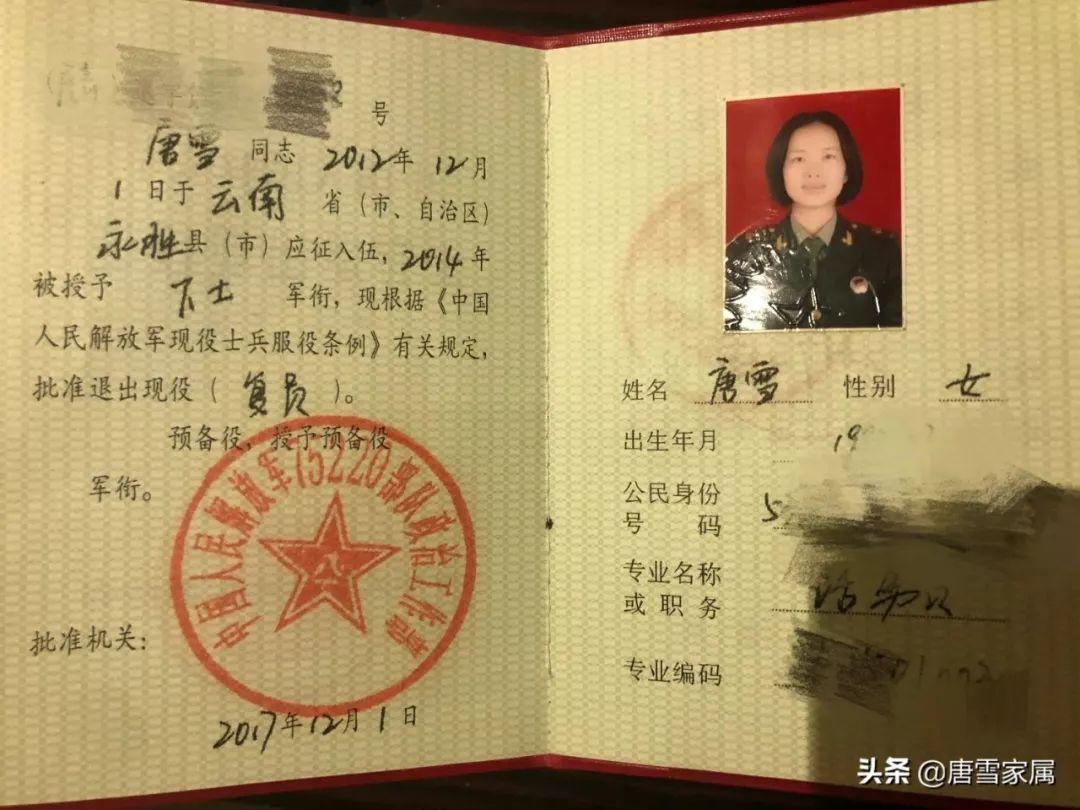 号
唐雪 同志 2012年 12月
1 日于 云南 省（市、自治区）
永胜县（市）应征入伍，2014年
被授予 下士 军衔，现根据《中国
人民解放军现役士兵服役条例》有关规定，
批准退出现役（ 复员 ）。
预备役，授予预备役
军衔。
中国人民解放军75220部队政治工作部
批准机关：
2017年12月1日
姓名 唐雪 性别 女
出生年月 19
公民身份
号 码 5
专业名称
或职务 话务员
专业编码
头条 @唐雪家属